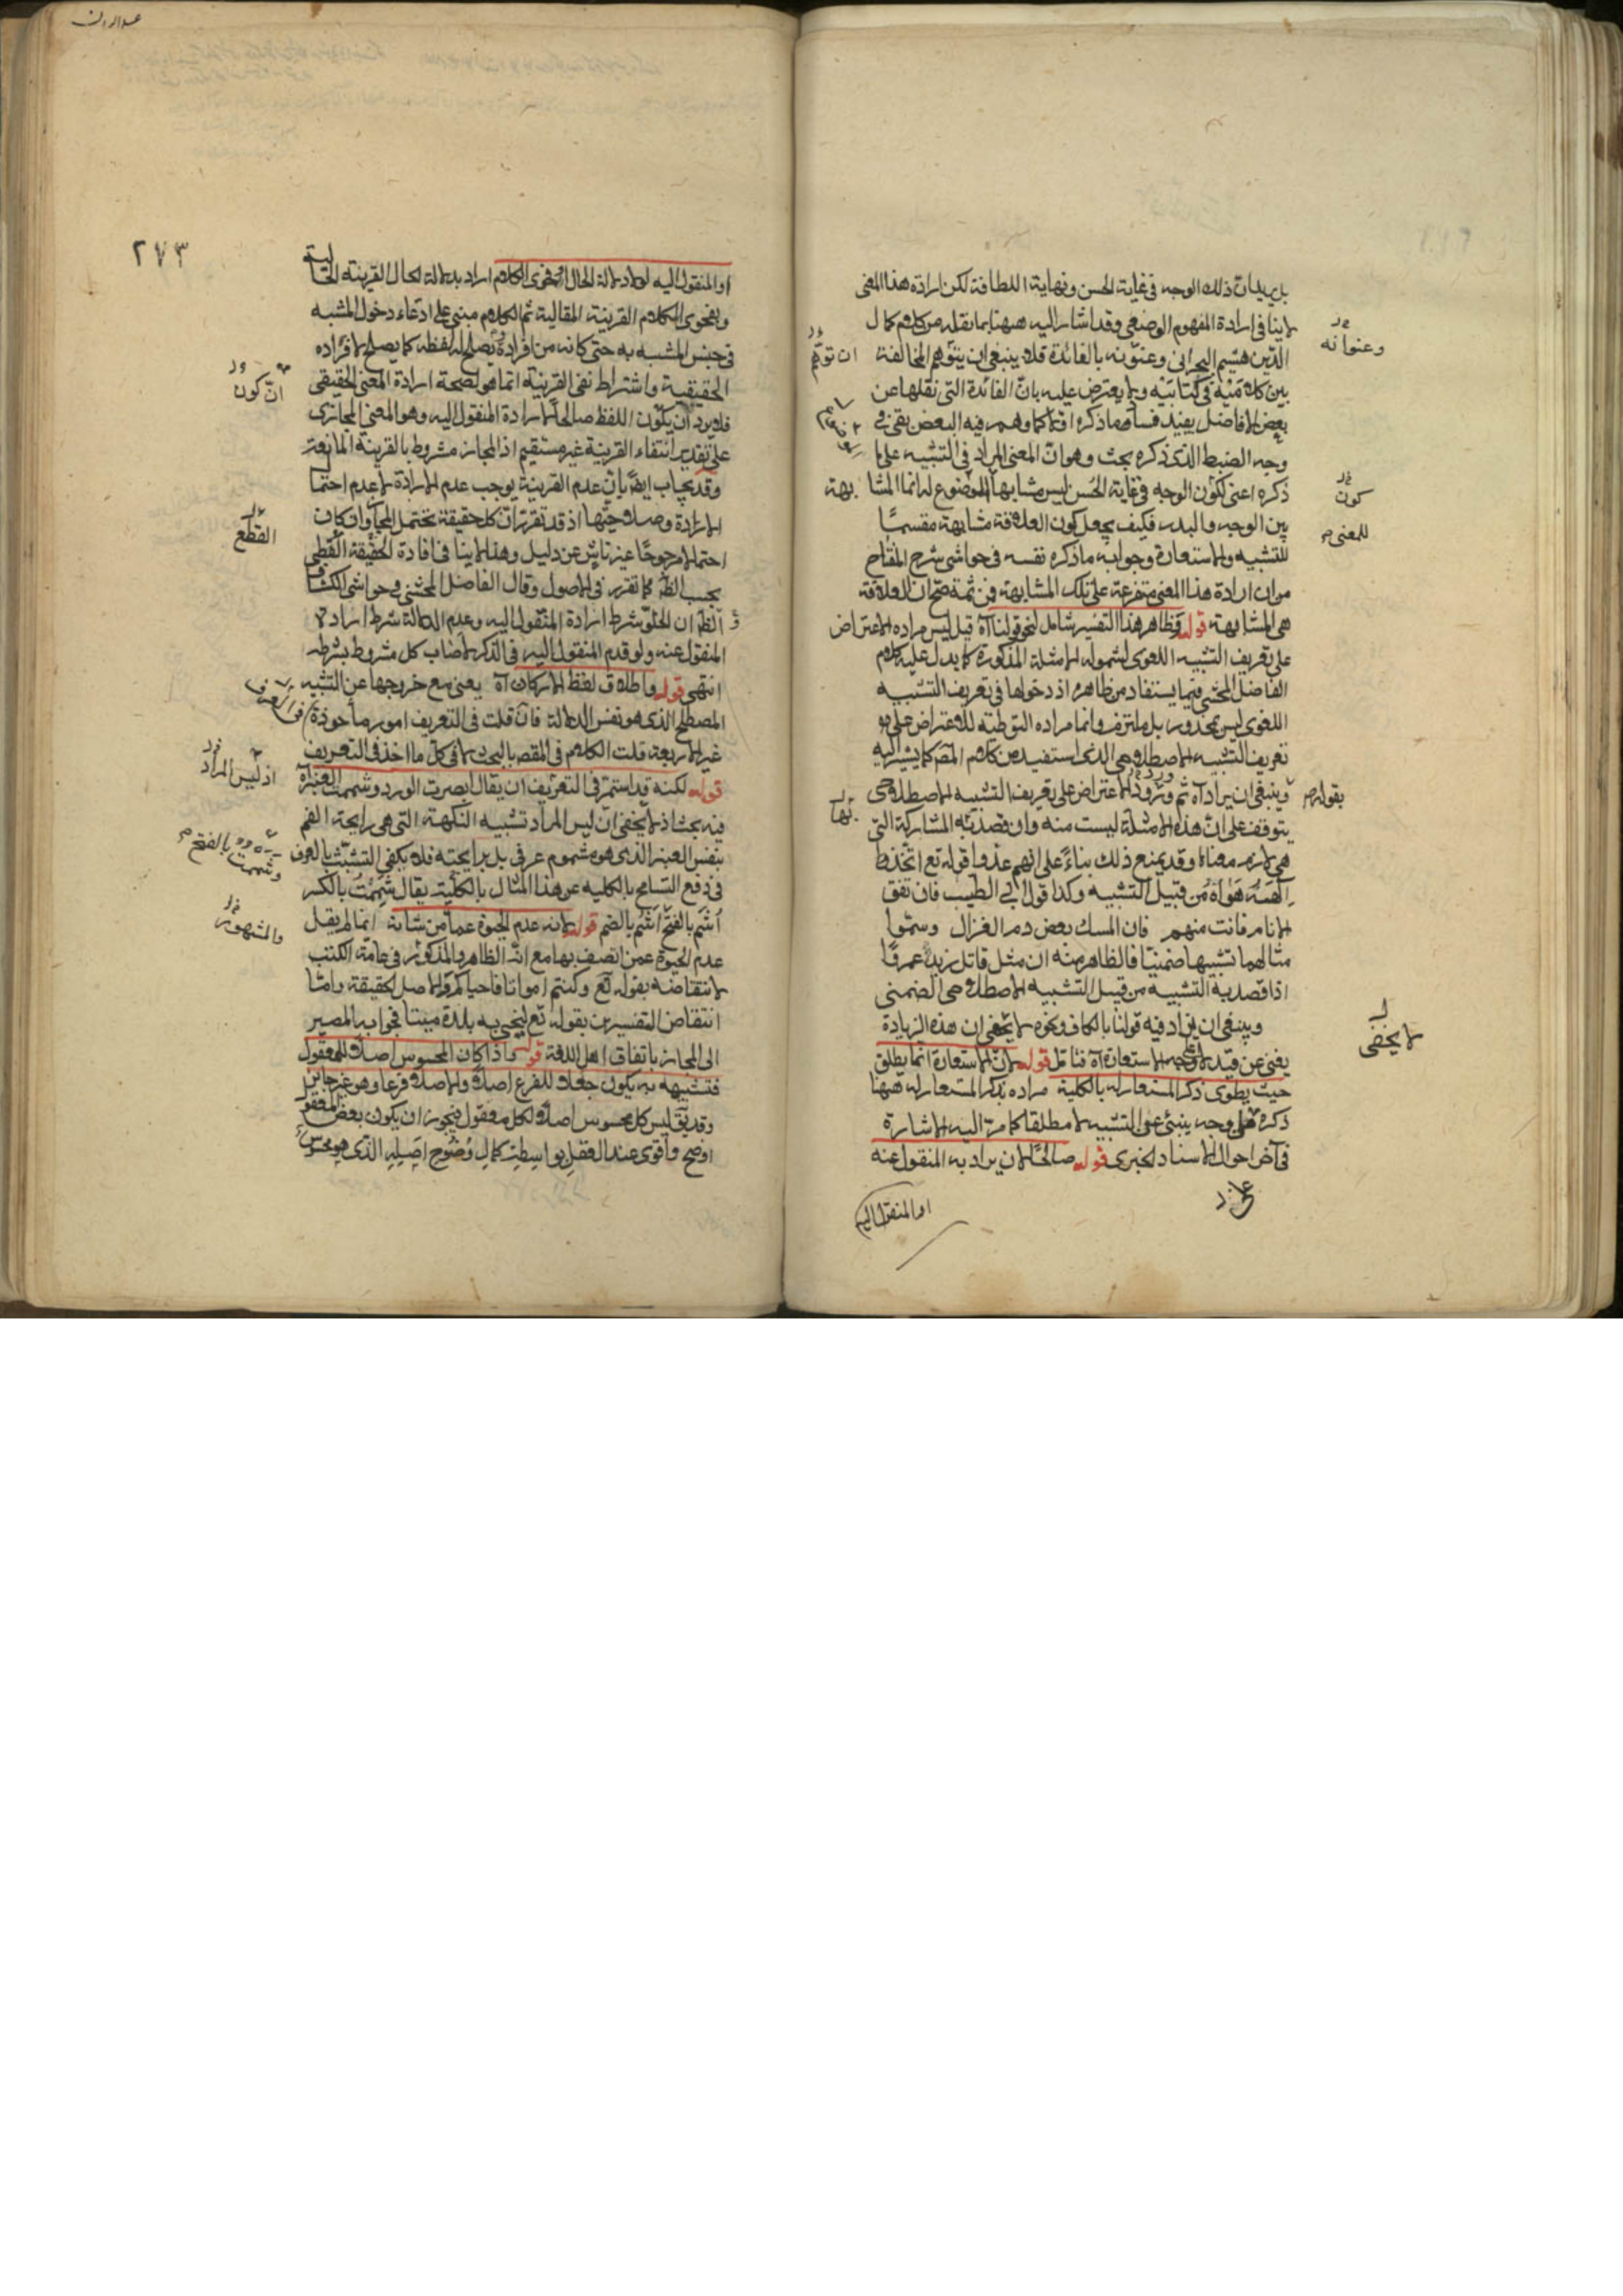 بل يريد ان ذلك الوجه في غاية الحسن ونهاية اللطافة لكن ارادة هذا المعنى
لا ينافي ارادة المفهوم الوضعي وقد اشار اليه ههنا بما نقله من كلام كمال
الدين هيثم البحراني وعنونه بالفائدة فلا ينبغي ان يتوهم المخالفة
بين كلاميه في كتابيه ولا يعترض عليه بان الفائدة التي نقلها عن
بعض الافاضل يفيد فساد ما ذكره اولا كما وهم فيه البعض بقي في
وجه الضبط الذي ذكره بحث وهو ان المعنى المراد في التشبيه على ما
ذكره اعني لكون الوجه في غاية الحسن ليس مشابها للموضوع له انما المشا بهة
بين الوجه والبدر فكيف يجعل كون العلاقة مشابهة مقسما
للتشبيه والاستعارة وجوابه ما ذكره نفسه في حواشي شرح المفتاح
من ان ارادة هذا المعنى متفرعة على تلك المشابهة فمن ثمة صح ان العلاقة
هي المشابهة قوله وظاهر هذا التفسير شامل لنحو قولنا آه قيل ليس مراده الاعتراض
على تعريف التشبيه اللغوي لشموله الامثلة المذكورة كما يدل عليه كلام
الفاضل المحشي فيما يستفاد من ظاهره اذ دخولها في تعريف التشبيه
اللغوي ليس بمحذور بل ملتزم وانما مراده التوطية للاعتراض على
تعريف التشبيه الاصطلاحي الذي استفيد من كلام المص كما يشير اليه
وينبغي ان يراد آه ثم ورود الاعتراض على تعريف التشبيه الاصطلاحي
يتوقف على ان هذه الامثلة ليست منه وان قصد به المشاركة التي
هي لازم معناه وقد يمنع ذلك بناء على انهم عدوا قوله تع اتخذ
الهه هواه من قبيل التشبيه وكذا قول ابي الطيب فان تفق
الانام فانت منهم فان المسك بعض دم الغزال وسموا
مثالهما تشبيها ضمنيا فالظاهر منه ان مثل قاتل زيد عمرا
اذا قصد به التشبيه من قبيل التشبيه الاصطلاحي الضمني
وينبغي ان يزاد فيه قولنا بالكاف ونحوه لا يخفى ان هذه الزيادة
يغني عن قيد لا وجه الاستعارة آه فتامل قوله لان الاستعارة انما يطلق
حيث يطوى ذكر المستعار له بالكلية مراده بذكر المستعار له ههنا
ذكره على وجه ينبئ عن التشبيه لا مطلقا كما مر اليه الاشارة
في آخر احوال الاسناد الخبري قوله صالحا لان يراد به المنقول عنه
او المنقول اليه
وعنوانه
ان توهم
كون
للمعنى
بقوله
لا يخفى
٢٧٣
او المنقول اليه لولا دلالة الحال او فحوى الكلام اراد بدلالة الحال القرينة الحالية
وبفحوى الكلام القرينة المقالية ثم الكلام مبني على ادعاء دخول المشبه
في جنس المشبه به حتى كانه من افراده يصلح له لفظه كما يصلح لافراده
الحقيقية واشتراط نفي القرينة انما هو لصحة ارادة المعنى الحقيقي
فلا يرد ان يكون اللفظ صالحا لارادة المنقول اليه وهو المعنى المجازي
على تقدير انتفاء القرينة غير مستقيم اذ المجاز مشروط بالقرينة المانعة
وقد يجاب ايضا بان عدم القرينة يوجب عدم الارادة لا عدم احتما
الارادة وصلاحيتها اذ قد تقرر ان كل حقيقة يحتمل المجاز وان كان
احتمالا مرجوحا غير ناش عن دليل وهذا لا ينافي افادة الحقيقة القطعي
بحسب الظ كما تقرر في الاصول وقال الفاضل المحشي في حواشي الكشاف
الظ ان الخلو شرط ارادة المنقول اليه وعدم الدلالة شرط ارادة
المنقول عنه ولو قدم المنقول اليه في الذكر لاصاب كل مشروط بشرطه
انتهى قوله واطلاق لفظ الاركان آه يعني مع خروجها عن التشبيه
المصطلح الذي هو نفس الدلالة فان قلت في التعريف امور مأخوذة
غير الاربعة قلت الكلام في المقصد بالبحث لا في كل ما اخذ في التعريف
قوله لكنه قد استمر في التعريف ان يقال ابصرت الورد وشممت العنبر آه
فيه بحث اذ لا يخفى ان ليس المراد تشبيه النكهة التي هي رايحة الفم
بنفس العنبر الذي هو مشموم عرفي بل برايحته فلا يكفي التشبث بالعرف
في دفع التسامح بالكلية عن هذا المثال بالكلية يقال شممت بالكسر
اشم بالفتح اشم بالضم قوله لانه عدم الحيوة عما من شانه انما لم يقل
عدم الحيوة عمن اتصف بها مع انه الظاهر والمذكور في عامة الكتب
لانتقاضه بقوله تع وكنتم امواتا فاحياكم والاصل الحقيقة وامّا
انتقاض التفسيرين بقوله تع لنحيي به بلدة ميتا فجوابه المصير
الى المجاز باتفاق اهل اللغة قوله واذا كان المحسوس اصلا للمعقول
فتشبيهه به يكون جعلا للفرع اصلا والاصل فرعا وهو غير جايز
وقد يق ليس كل محسوس اصلا لكل معقول فيجوز ان يكون بعض المعقو
اوضح واقوى عند العقل بواسطة كمال وضوح اصيله الذي هو محسوس
ان كون
القطع
في العرف
اذ ليس المراد
وشممت بالفتح
والمشهور